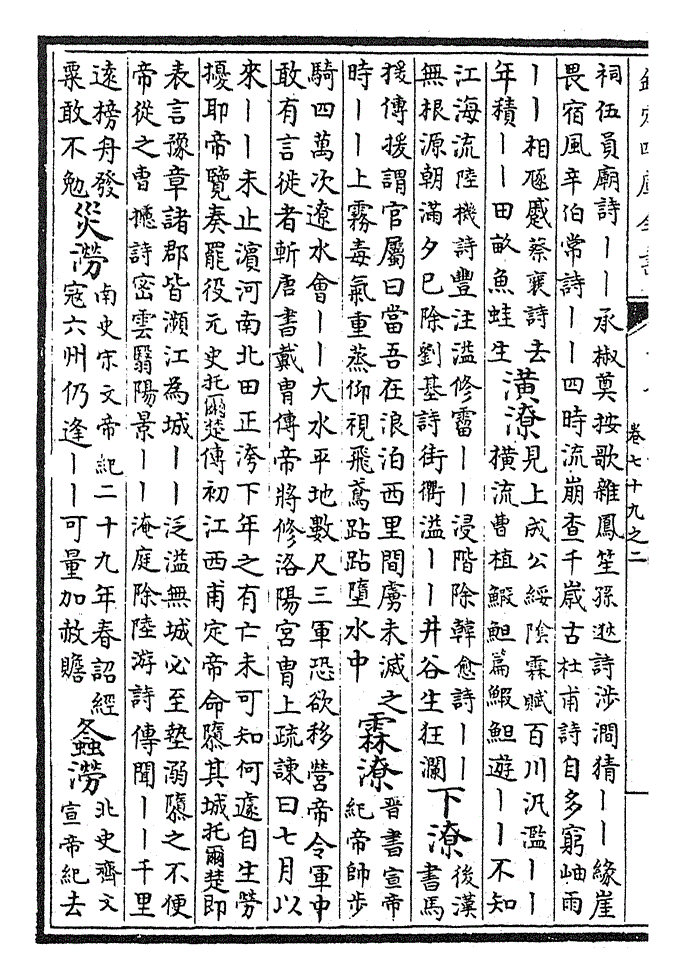 卷七十九之二
祠伍員廟詩丨丨承椒奠按歌雜鳳笙孫逖詩涉澗猜丨丨緣崖
畏宿風辛伯常詩丨丨四時流崩查千歲古杜甫詩自多窮岫雨
丨丨相蹙蔡襄詩去
年積丨丨田畝魚蛙生
潢潦
見上成公綏陰霖賦百川汎濫丨丨
橫流曹植鰕䱇篇鰕䱇遊丨丨不知
江海流陸機詩豐注溢修霤丨丨浸階除韓愈詩丨丨
無根源朝滿夕巳除劉基詩街衢溢丨丨井谷生狂瀾
下潦
後漢
書馬
援傳援謂官屬曰當吾在浪泊西里間虜未滅之
時丨丨上霧毒氣重蒸仰視飛鳶跕跕墮水中
霖潦
晉書宣帝
紀帝師步
騎四萬次遼水會丨丨大水平地數尺三軍恐欲移營帝令軍中
敢有言徙者斬唐書戴胄傳帝將修洛陽宮胄上疏諫曰七月以
來丨丨未止濵河南北田正洿下年之有亡未可知何遽自生勞
擾耶帝覽奏罷役元史托爾楚傳初江西甫定帝命隳其城托爾楚即
表言豫章諸郡皆瀕江為城丨丨泛溢無城必至墊溺隳之不便
帝從之曹攄詩密雲翳陽景丨丨淹庭除陸游詩傳聞丨丨千里
遠榜舟發
粟敢不勉
災澇
南史宋文帝紀二十九年春詔經
寇六州仍逢丨丨可量加救贍
螽澇
北史齊文
宣帝紀去